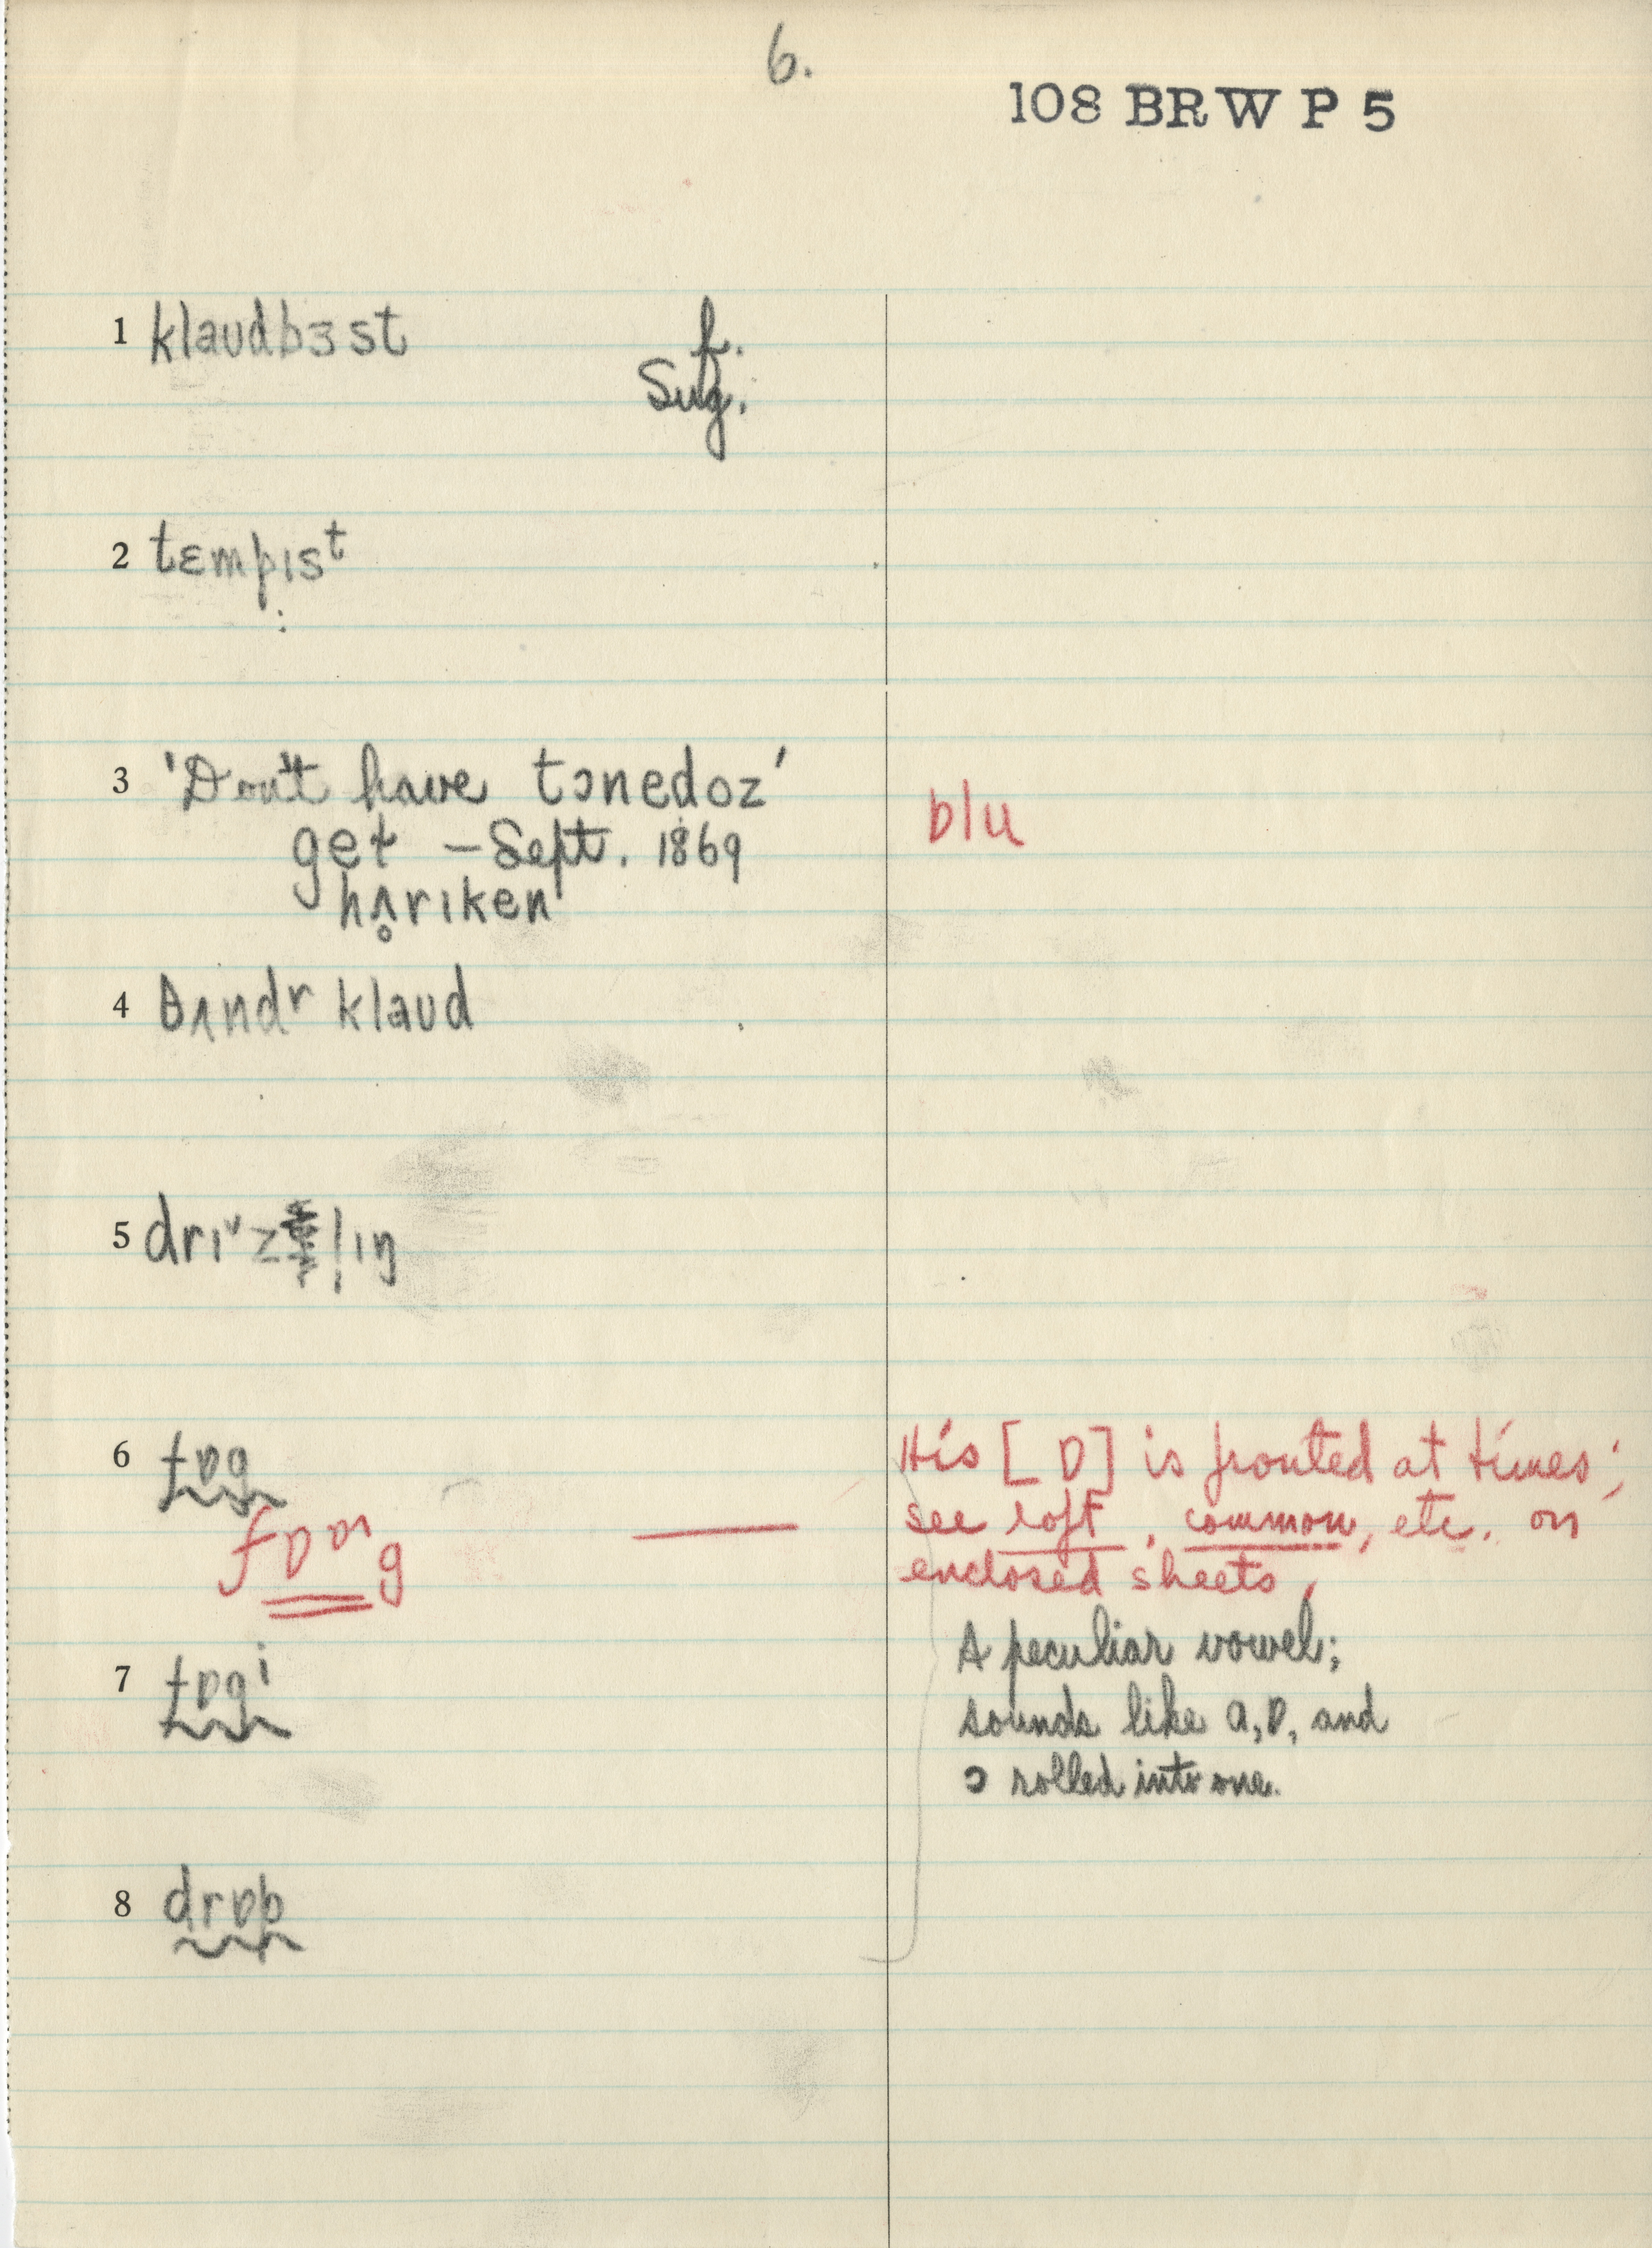 6.
108 BRW P 5
1 klaudbɜst f.
Sug.
2 tɛmpɪsᵗ
3 'Don't have tɔnedoz' blu
get – Sept. 1869
hʌ̥rɪken
4 θʌndʳ klaud
5 drɪˇzl̩ɪŋ
6 fɒg His [ɒ] is fronted at times;
see loft, common, etc. on
fɒᶛg enclosed sheets,
A peculiar vowel;
7 fɒgⁱ
sounds like a, ɒ, and
ɔ rolled into one.
8 drɒp